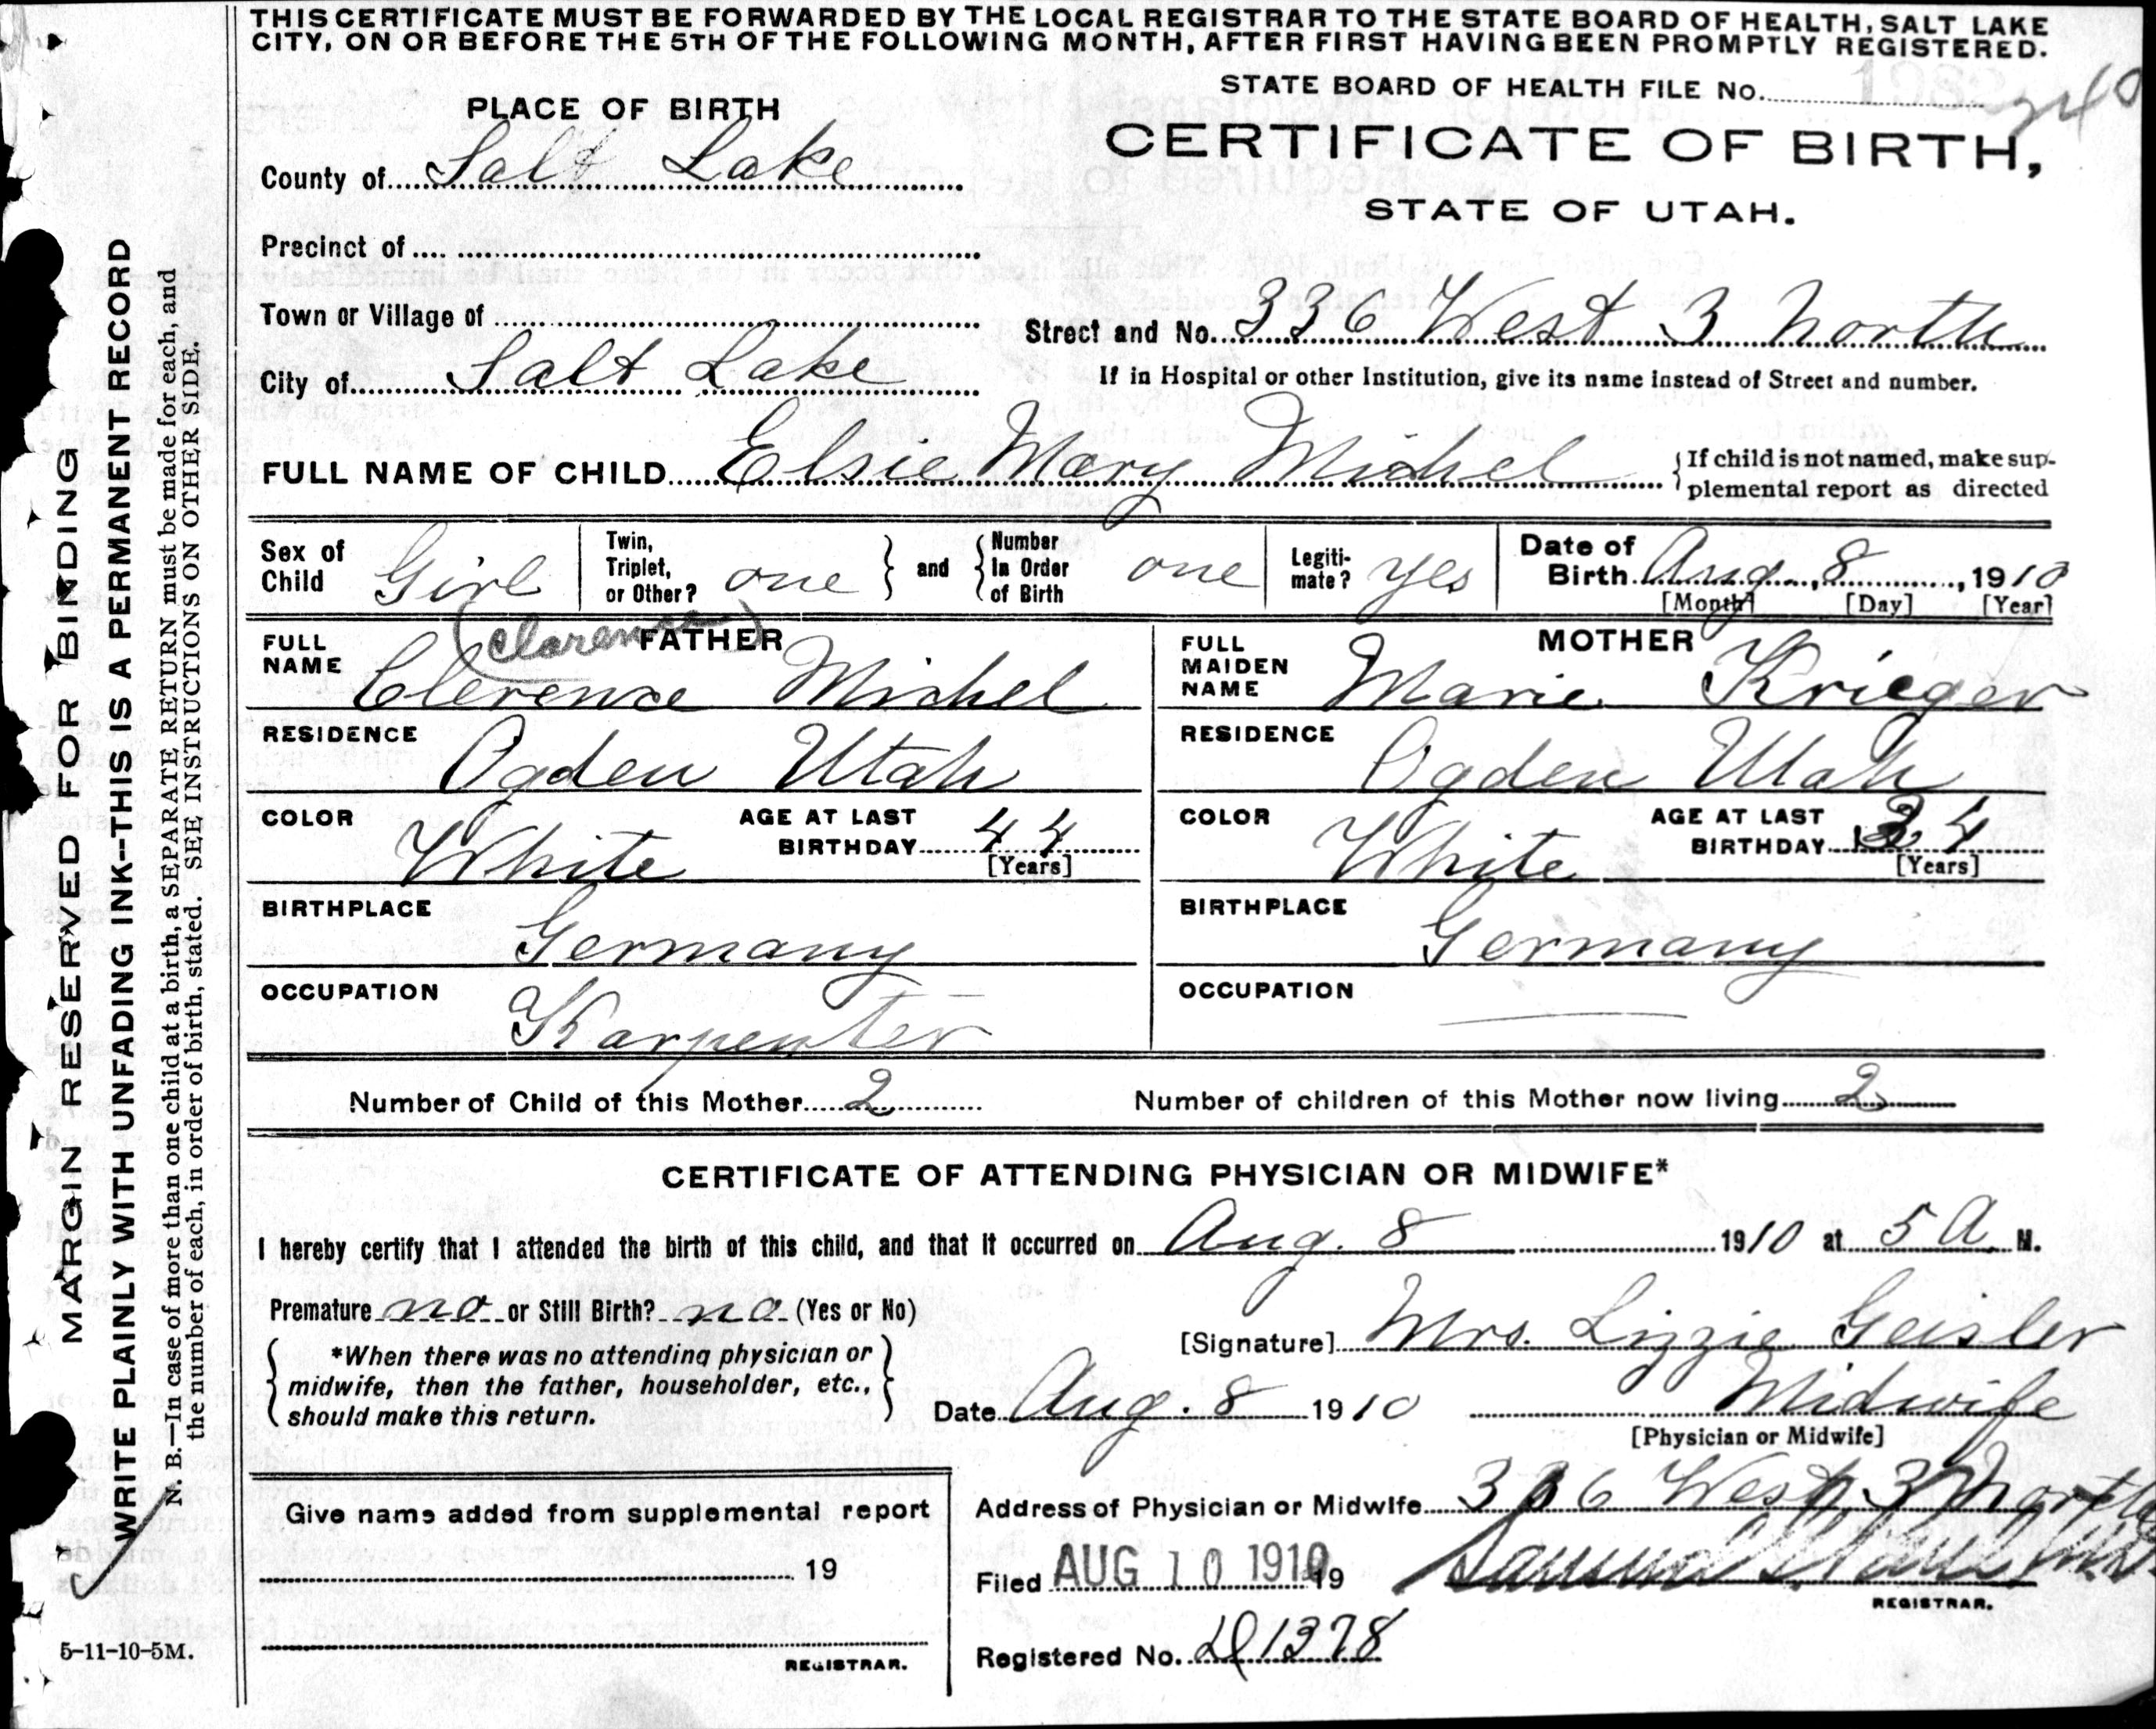 THIS CERTIFICATE MUST BE FORWARDED BY THE LOCAL REGISTRAR TO THE STATE BOARD OF HEALTH, SALT LAKE
CITY, ON OR BEFORE THE 5TH OF THE FOLLOWING MONTH, AFTER FIRST HAVING BEEN PROMPTLY REGISTERED.
STATE BOARD OF HEALTH FILE No.
PLACE OF BIRTH
CERTIFICATE OF BIRTH,
STATE OF UTAH.
County of Salt Lake
Precinct of
Town or Village of
Street and No. 336 West 3 North
City of Salt Lake
If in Hospital or other Institution, give its name instead of Street and number.
FULL NAME OF CHILD Elsie Mary Michel
If child is not named, make sup-
plemental report as directed
Sex of Child Girl
Twin, Triplet, or Other? one
and
Number In Order of Birth one
Legiti-mate? yes
Date of Birth Aug. 8, 1910
[Month] [Day] [Year]
FATHER
FULL NAME (Clarence) Clerence Michel
RESIDENCE Ogden Utah
COLOR White
AGE AT LAST BIRTHDAY 44
[Years]
BIRTHPLACE Germany
OCCUPATION Karpenter
MOTHER
FULL MAIDEN NAME Marie Krieger
RESIDENCE Ogden Utah
COLOR White
AGE AT LAST BIRTHDAY 34
[Years]
BIRTHPLACE Germany
OCCUPATION
Number of Child of this Mother 2
Number of children of this Mother now living 2
CERTIFICATE OF ATTENDING PHYSICIAN OR MIDWIFE*
I hereby certify that I attended the birth of this child, and that it occurred on Aug. 8 1910 at 5 A M.
Premature no or Still Birth? no (Yes or No)
*When there was no attending physician or
midwife, then the father, householder, etc.,
should make this return.
[Signature] Mrs. Lizzie Geisler
Date Aug. 8 1910
Midwife
[Physician or Midwife]
Give name added from supplemental report
19
REGISTRAR.
Address of Physician or Midwife 336 West 3 North
Filed AUG 10 1910 19
REGISTRAR.
Registered No. 1378
MARGIN RESERVED FOR BINDING
WRITE PLAINLY WITH UNFADING INK--THIS IS A PERMANENT RECORD
N. B.—In case of more than one child at a birth, a SEPARATE RETURN must be made for each, and
the number of each, in order of birth, stated. SEE INSTRUCTIONS ON OTHER SIDE.
5-11-10-5M.